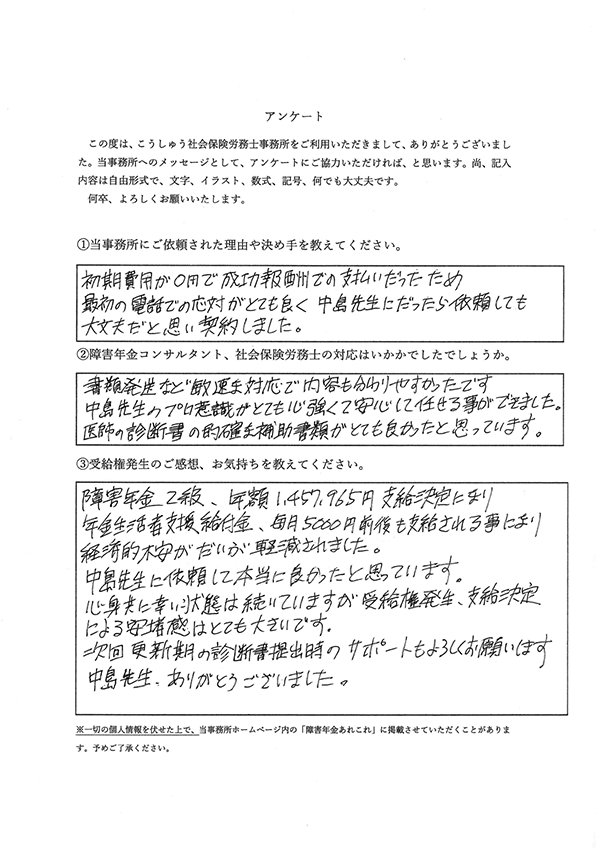 アンケート
この度は、こうしゅう社会保険労務士事務所をご利用いただきまして、ありがとうございまし
た。当事務所へのメッセージとして、アンケートにご協力いただければ、と思います。尚、記入
内容は自由形式で、文字、イラスト、数式、記号、何でも大丈夫です。
何卒、よろしくお願いいたします。
①当事務所にご依頼された理由や決め手を教えてください。
初期費用が0円で成功報酬での支払いだったため
最初の電話での応対がとても良く中島先生にだったら依頼しても
大丈夫だと思い契約しました。
②障害年金コンサルタント、社会保険労務士の対応はいかかでしたでしょうか。
書類発送など敏速な対応で内容も分りやすかったです
中島先生のプロ意識がとても心強くて安心して任せる事ができました。
医師の診断書の的確な補助書類がとても良かったと思っています。
③受給権発生のご感想、お気持ちを教えてください。
障害年金2級、年額1,457,965円支給決定になり
年金生活者支援給付金、毎月5000円前後も支給される事になり
経済的不安がだいぶ軽減されました。
中島先生に依頼して本当に良かったと思っています。
心身共に辛い状態は続いていますが受給権発生、支給決定
による安堵感はとても大きいです。
次回更新期の診断書提出時のサポートもよろしくお願いします
中島先生、ありがとうございました。
※一切の個人情報を伏せた上で、当事務所ホームページ内の「障害年金あれこれ」に掲載させていただくことがありま
す。予めご了承ください。